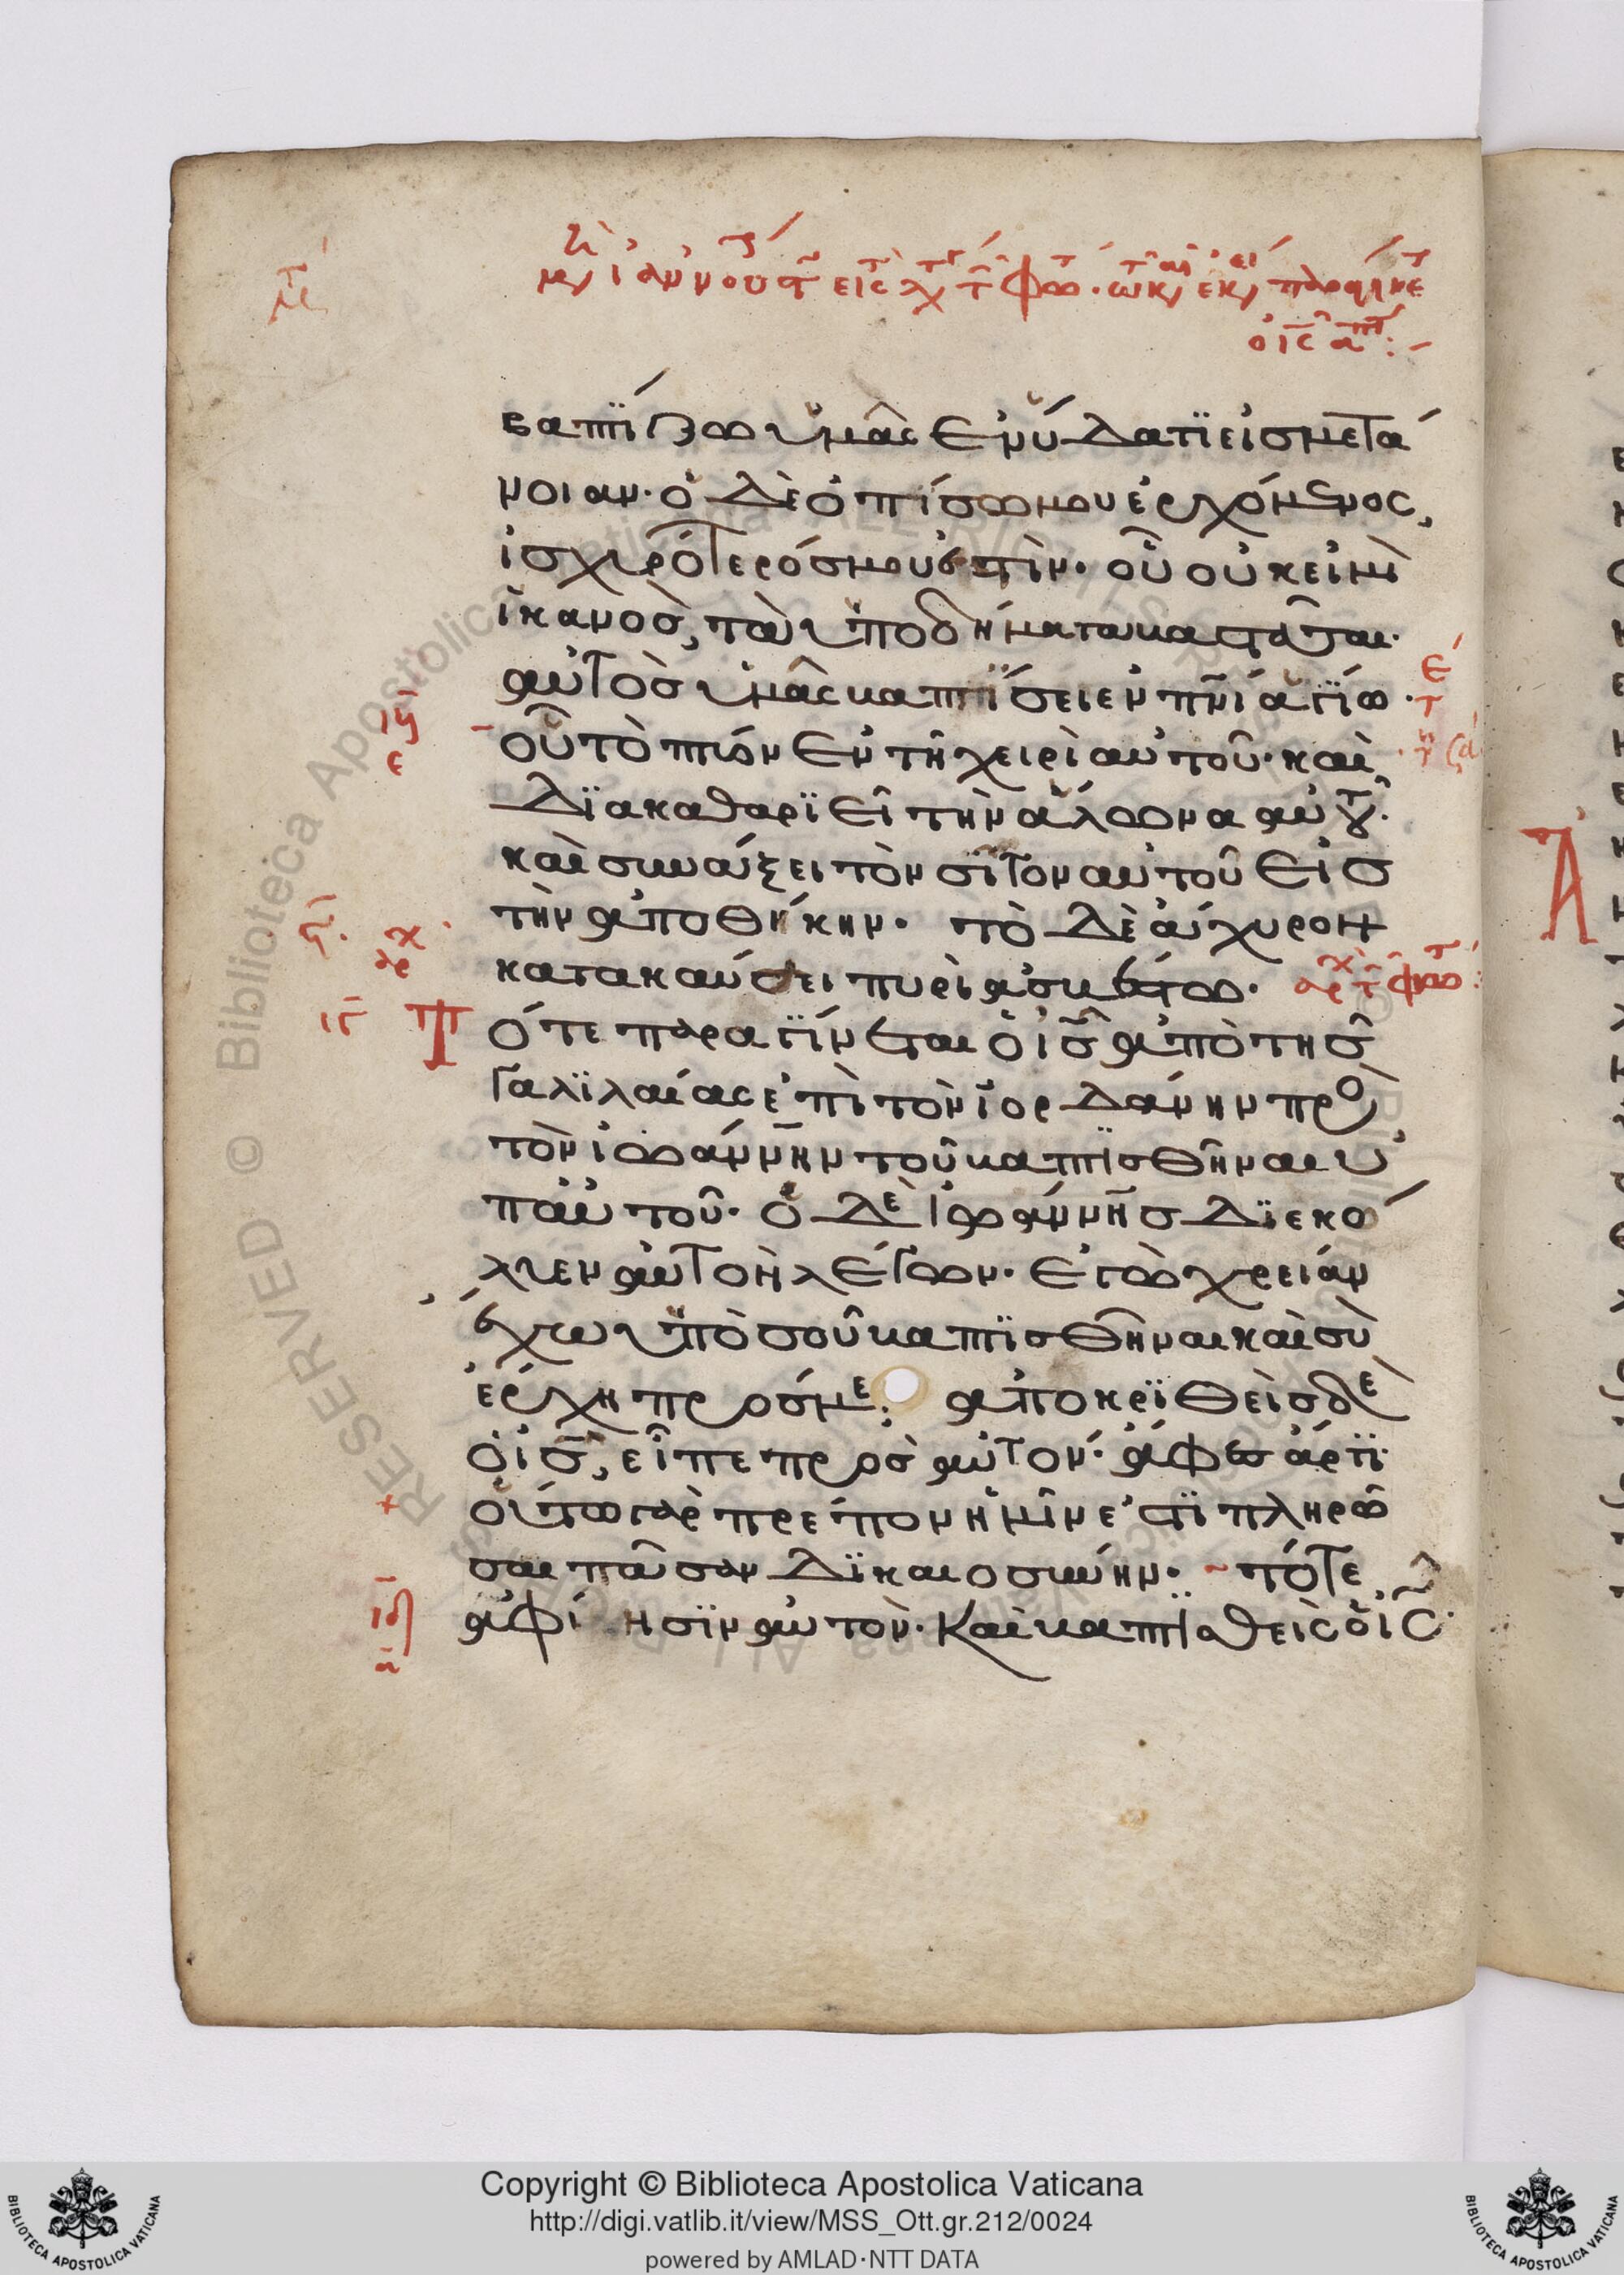 βαπτίζω ὑμᾶς ἐν ὕδατι εἰσ μετά
νοιαν· ὁ δὲ ὀπίσω μου ἐρχόμενος,
ἰσχυρότερόσ μου ἐστὶν· οὗ οὐκ εἰμὶ
ἱκανὸσ, τὰ ὑποδήματα βαστάσαι·
αὐτὸσ ὑμᾶς βαπτίσει ἐν πνι ἁγίω·
οὗ τὸ πτύον ἐν τῆ χειρὶ αὐτοῦ· καὶ
διακαθαριεῖ τὴν ἅλωνα αὐτοῦ·
καὶ συνάξει τὸν σῖτον αὐτοῦ εἰσ
τὴν ἀποθήκην· τὸ δὲ ἄχυρον
κατακαύσει πυρὶ ἀσβέστω·
Τ ότε παραγίνεται ὁ ισ ἀπὸ τῆσ
Γαλιλαίας ἐπὶ τὸν ἰορδάνην πρὸ
τὸν ἰωάννην τοῦ βαπτισθῆναι ὑ
π αὐτοῦ· ὁ δὲ ἰωάννησ διεκό
λυεν αὐτὸν λέγων· ἐγὼ χρείαν
ἔχω ὑπὸ σοῦ βαπτισθῆναι καὶ σὺ
ἔρχη πρόσ με; ἀποκριθεὶσ δὲ
ὁ ισ, εἶπε πρὸσ αὐτόν· ἄφεσ ἄρτι·
οὕτω γὰρ πρέπον ἡμῖν ἐστὶ πληρῶ
σαι πᾶσαν δικαιοσύνην· τότε
ἀφίησιν αὐτὸν· Καὶ βαπτισθεὶς ὁ ις
Copyright © Biblioteca Apostolica Vaticana
http://digi.vatlib.it/view/MSS_Ott.gr.212/0024
powered by AMLAD·NTT DATA
BIBLIOTECA APOSTOLICA VATICANA
BIBLIOTECA APOSTOLICA VATICANA